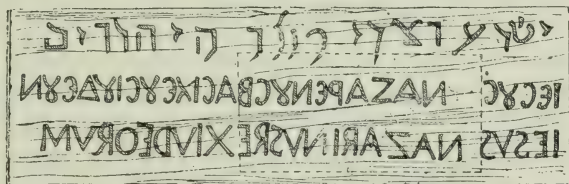 ישוע נצרי מלך היהודים
IECȢC NAZAPENȢCBACIΛEȢCIȢΔEȢN
IESVS NAZARINVSREXIVDEORVM